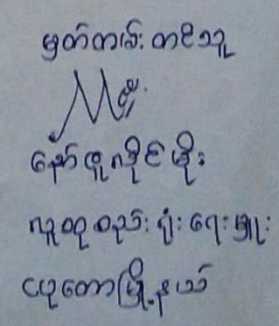 မှတ်တမ်းတင်သူ
နော်ထူးလှိုင်ဖိုး
လူထုစည်းရုံးရေးမှူး
ငပုတောမြို့နယ်